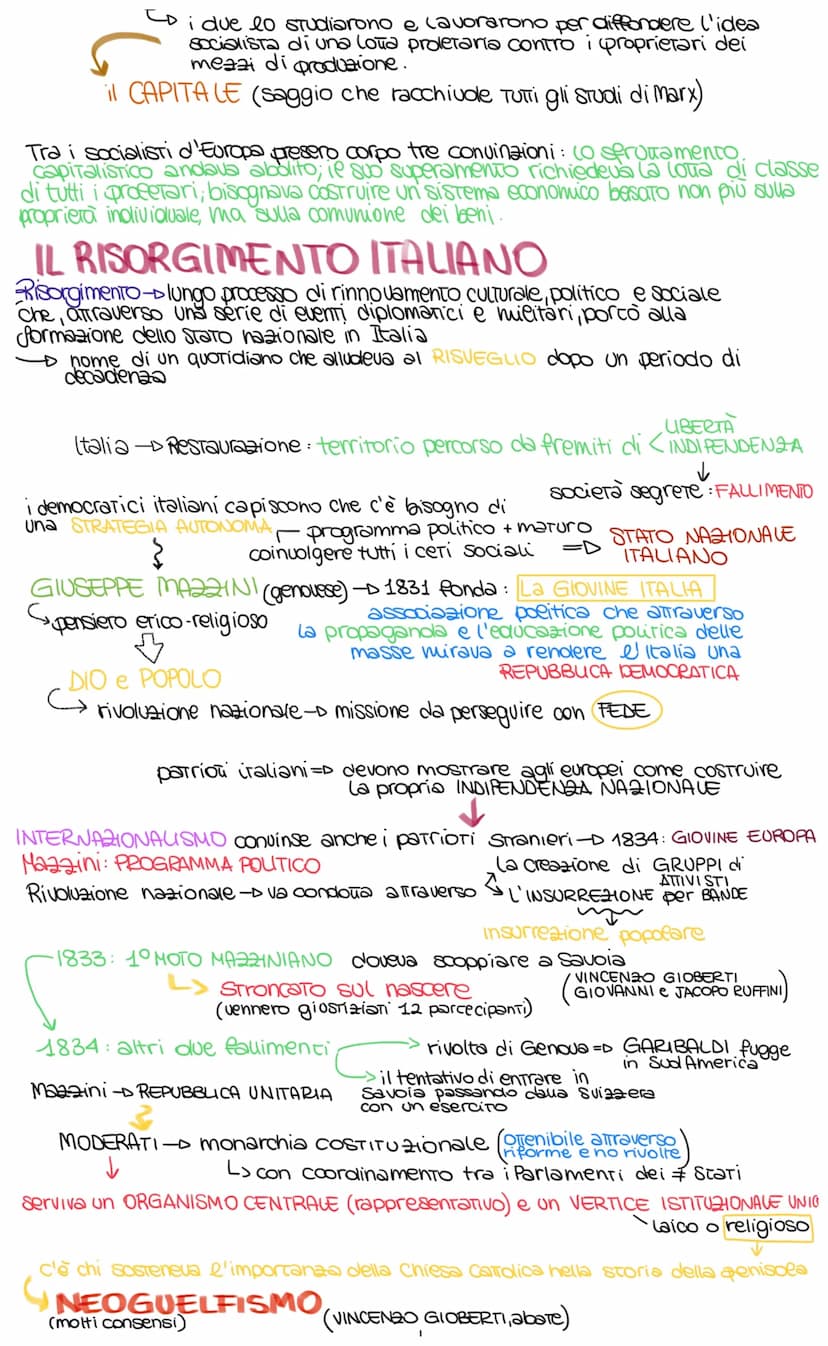 ↳ i due lo studiarono e lavorarono per diffondere l'idea
socialista di una lotta proletaria contro i proprietari dei
mezzi di produzione.
il CAPITALE (saggio che racchiude tutti gli studi di Marx)
Tra i socialisti d'Europa presero corpo tre convinzioni: lo sfruttamento
capitalistico andava abolito; il suo superamento richiedeva la lotta di classe
di tutti i proletari; bisognava costruire un sistema economico basato non più sulla
proprietà individuale, ma sulla comunione dei beni.
IL RISORGIMENTO ITALIANO
Risorgimento → lungo processo di rinnovamento culturale, politico e sociale
che, attraverso una serie di eventi diplomatici e militari, portò alla
formazione dello Stato nazionale in Italia
→ nome di un quotidiano che alludeva al RISVEGLIO dopo un periodo di
decadenza
Italia → Restaurazione: territorio percorso da fremiti di < LIBERTÀ
INDIPENDENZA
↓
società segrete: FALLIMENTO
i democratici italiani capiscono che c'è bisogno di
una STRATEGIA AUTONOMA programma politico + maturo
coinvolgere tutti i ceti sociali ⇒ STATO NAZIONALE
ITALIANO
GIUSEPPE MAZZINI (genovese) → 1831 fonda: La GIOVINE ITALIA
↳ pensiero etico-religioso
associazione politica che attraverso
la propaganda e l'educazione politica delle
masse mirava a rendere l'Italia una
REPUBBLICA DEMOCRATICA
DIO e POPOLO
↳ rivoluzione nazionale → missione da perseguire con FEDE
patrioti italiani ⇒ devono mostrare agli europei come costruire
la propria INDIPENDENZA NAZIONALE
↓
INTERNAZIONALISMO convinse anche i patrioti stranieri → 1834: GIOVINE EUROPA
Mazzini: PROGRAMMA POLITICO
Rivoluzione nazionale → va condotta attraverso
la creazione di GRUPPI di
ATTIVISTI
L'INSURREZIONE per BANDE
insurrezione popolare
1833: 1° MOTO MAZZINIANO doveva scoppiare a Savoia
↳ stroncato sul nascere
(vennero giustiziati 12 partecipanti)
(VINCENZO GIOBERTI
GIOVANNI e JACOPO RUFFINI)
1834: altri due fallimenti
→ rivolta di Genova ⇒ GARIBALDI fugge
in Sud America
→ il tentativo di entrare in
Savoia passando dalla Svizzera
con un esercito
Mazzini → REPUBBLICA UNITARIA
MODERATI → monarchia COSTITUZIONALE (ottenibile attraverso
riforme e no rivolte)
↳ con coordinamento tra i Parlamenti dei ≠ Stati
serviva un ORGANISMO CENTRALE (rappresentativo) e un VERTICE ISTITUZIONALE UNIC
laico o religioso
c'è chi sosteneva l'importanza della Chiesa Cattolica nella storia della penisola
↳ NEOGUELFISMO
(molti consensi)
(VINCENZO GIOBERTI, abate)